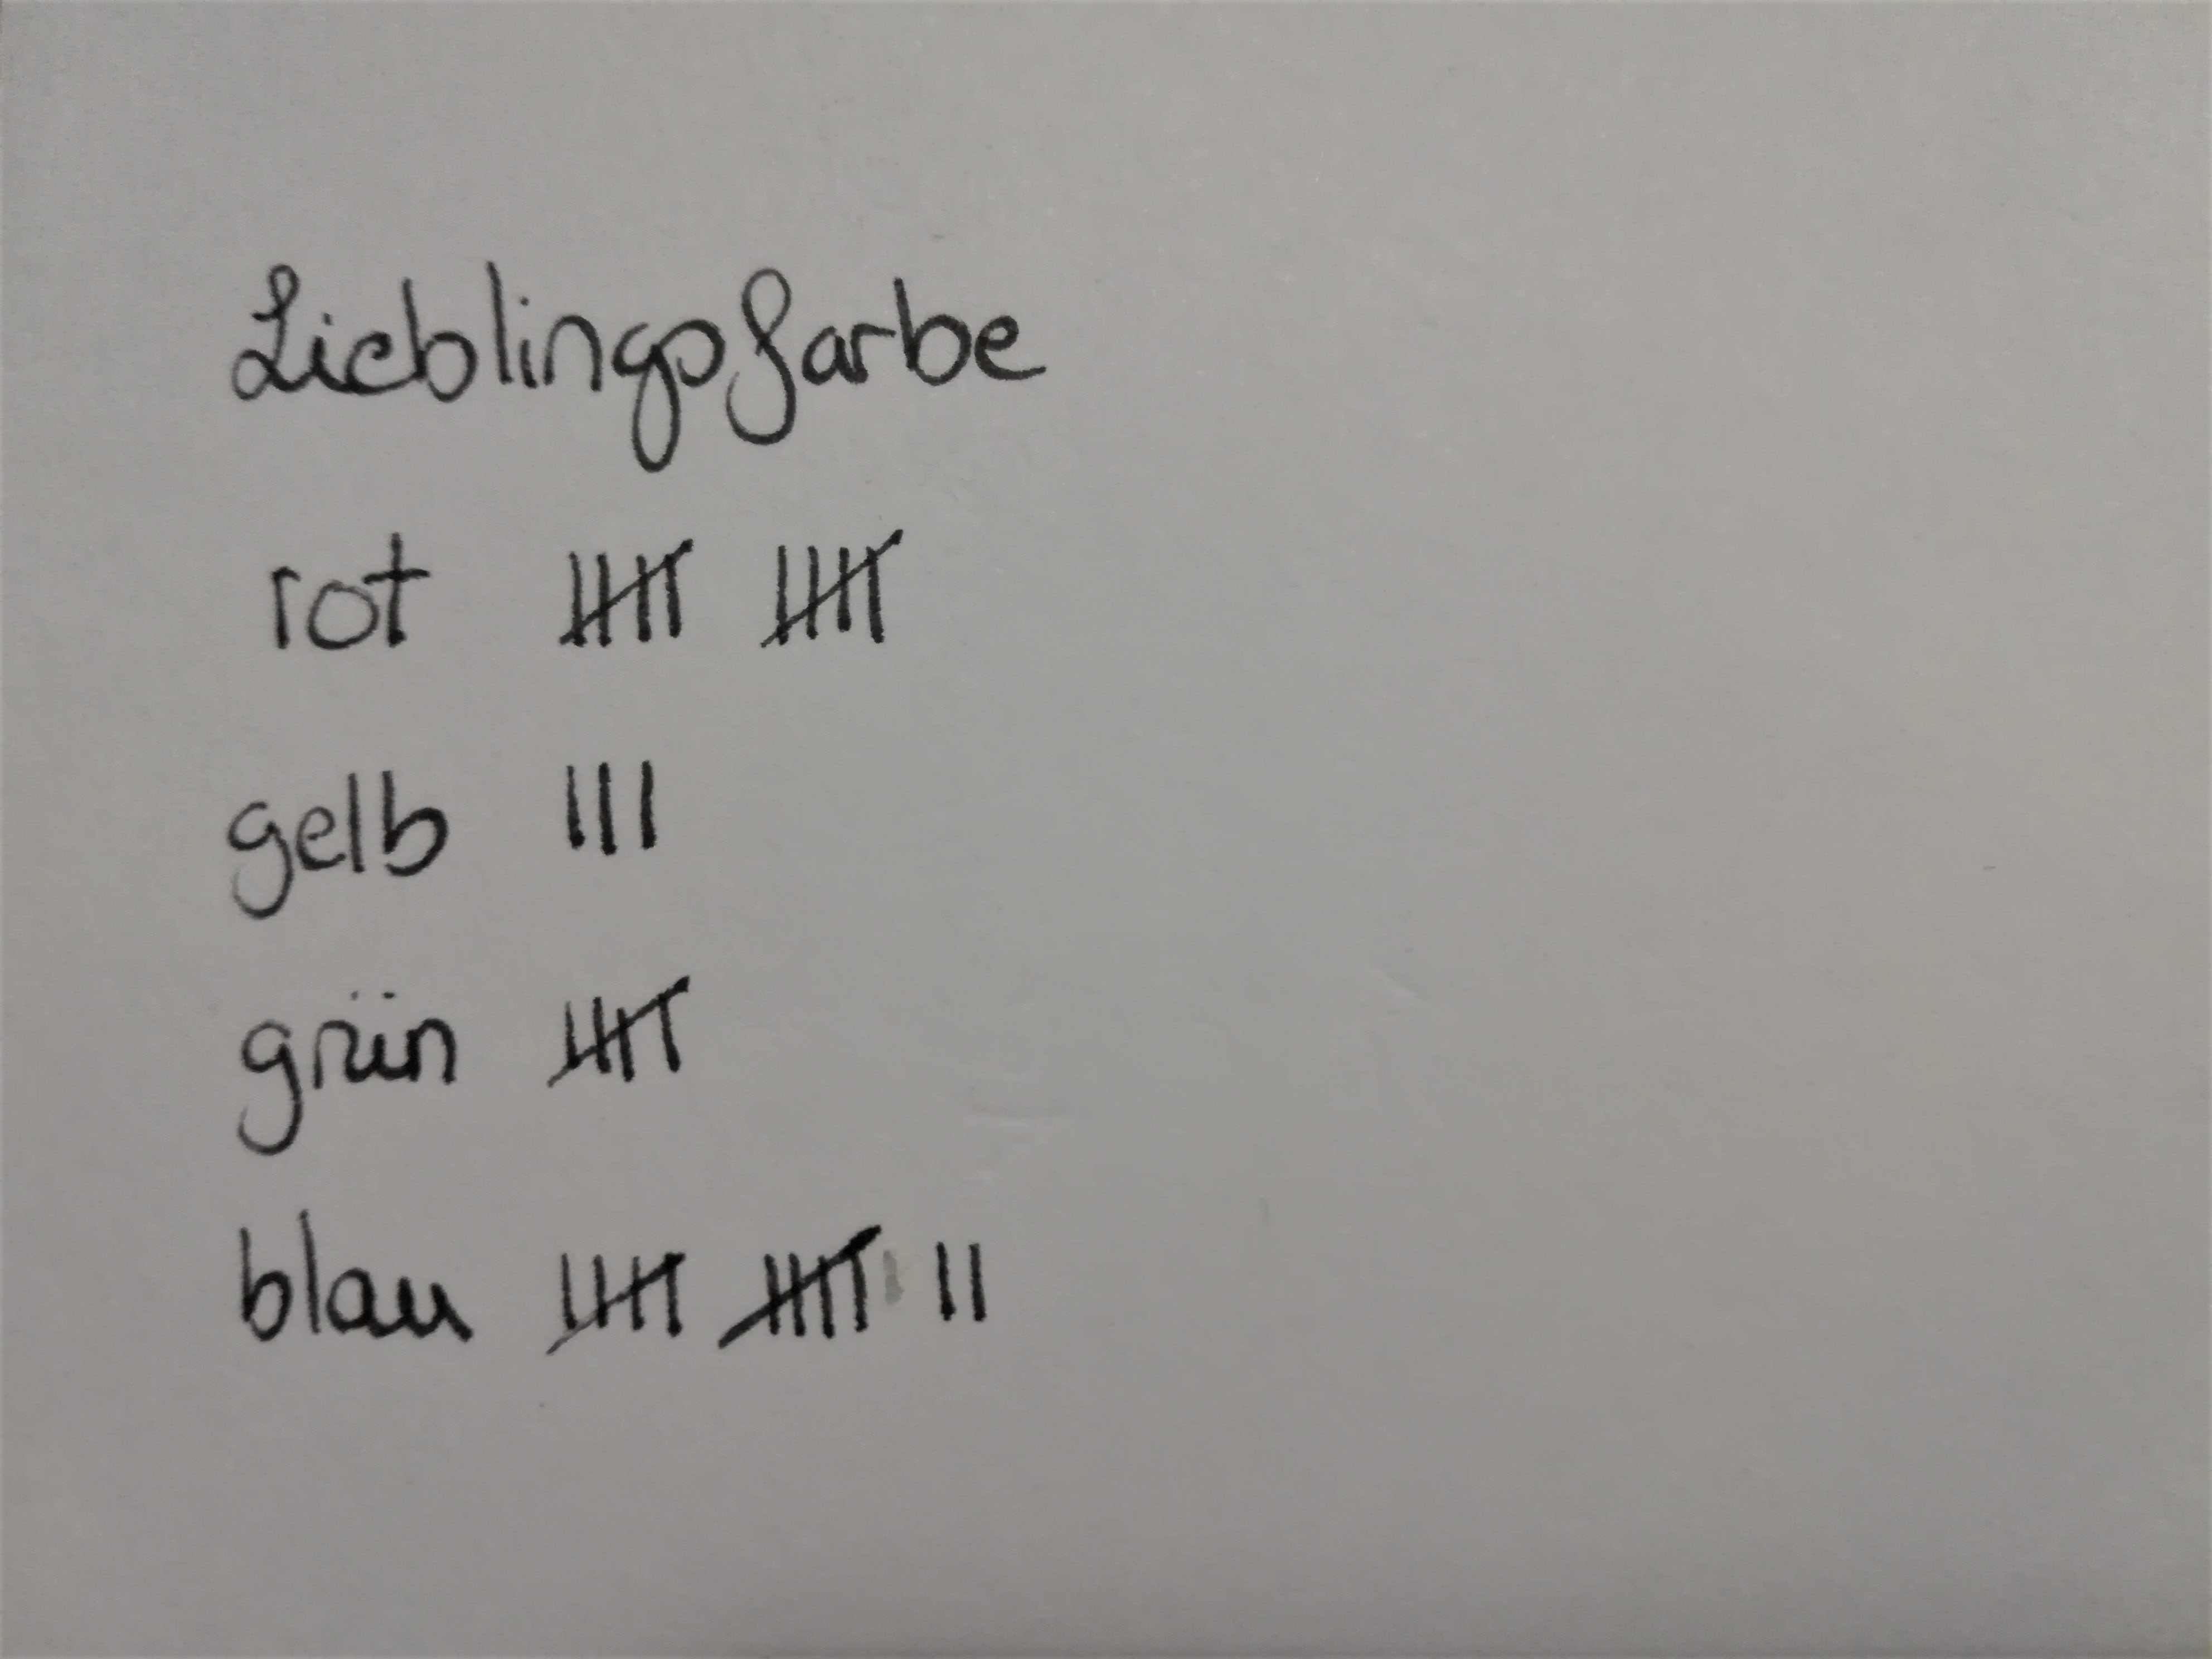 Lieblingsfarbe
rot |||| ||||
gelb |||
grün ||||
blau |||| |||| ||